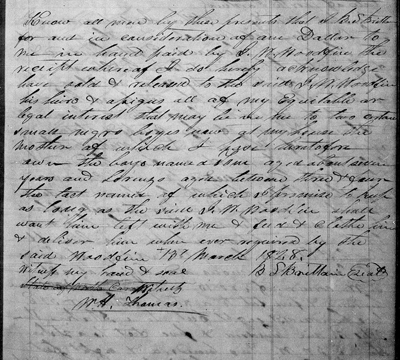 Know all men by these presents that I B S Brittain
for and in consideration of one Dollar to
me in hand paid by J. W. Woodfin the
receipt whereof I do hereby acknowledge
have sold & released to the said J. W. Woodfin
his heirs & assigns all of my Equitable or
legal interest that may be due to two certain
small negro boyes now at my house the
mother of which I gave heretofore
own the boys named aged about seven
years and Alonzo aged between three & four
the last named of which I promise to keep
as long as the said J. W. Woodfin shall
want him left with me & feed & clothe him
& deliver him when ever required by the
said Woodfin 13 March 1848.
witness my hand & seal B S Brittain (Seal)
W. H. Thomas